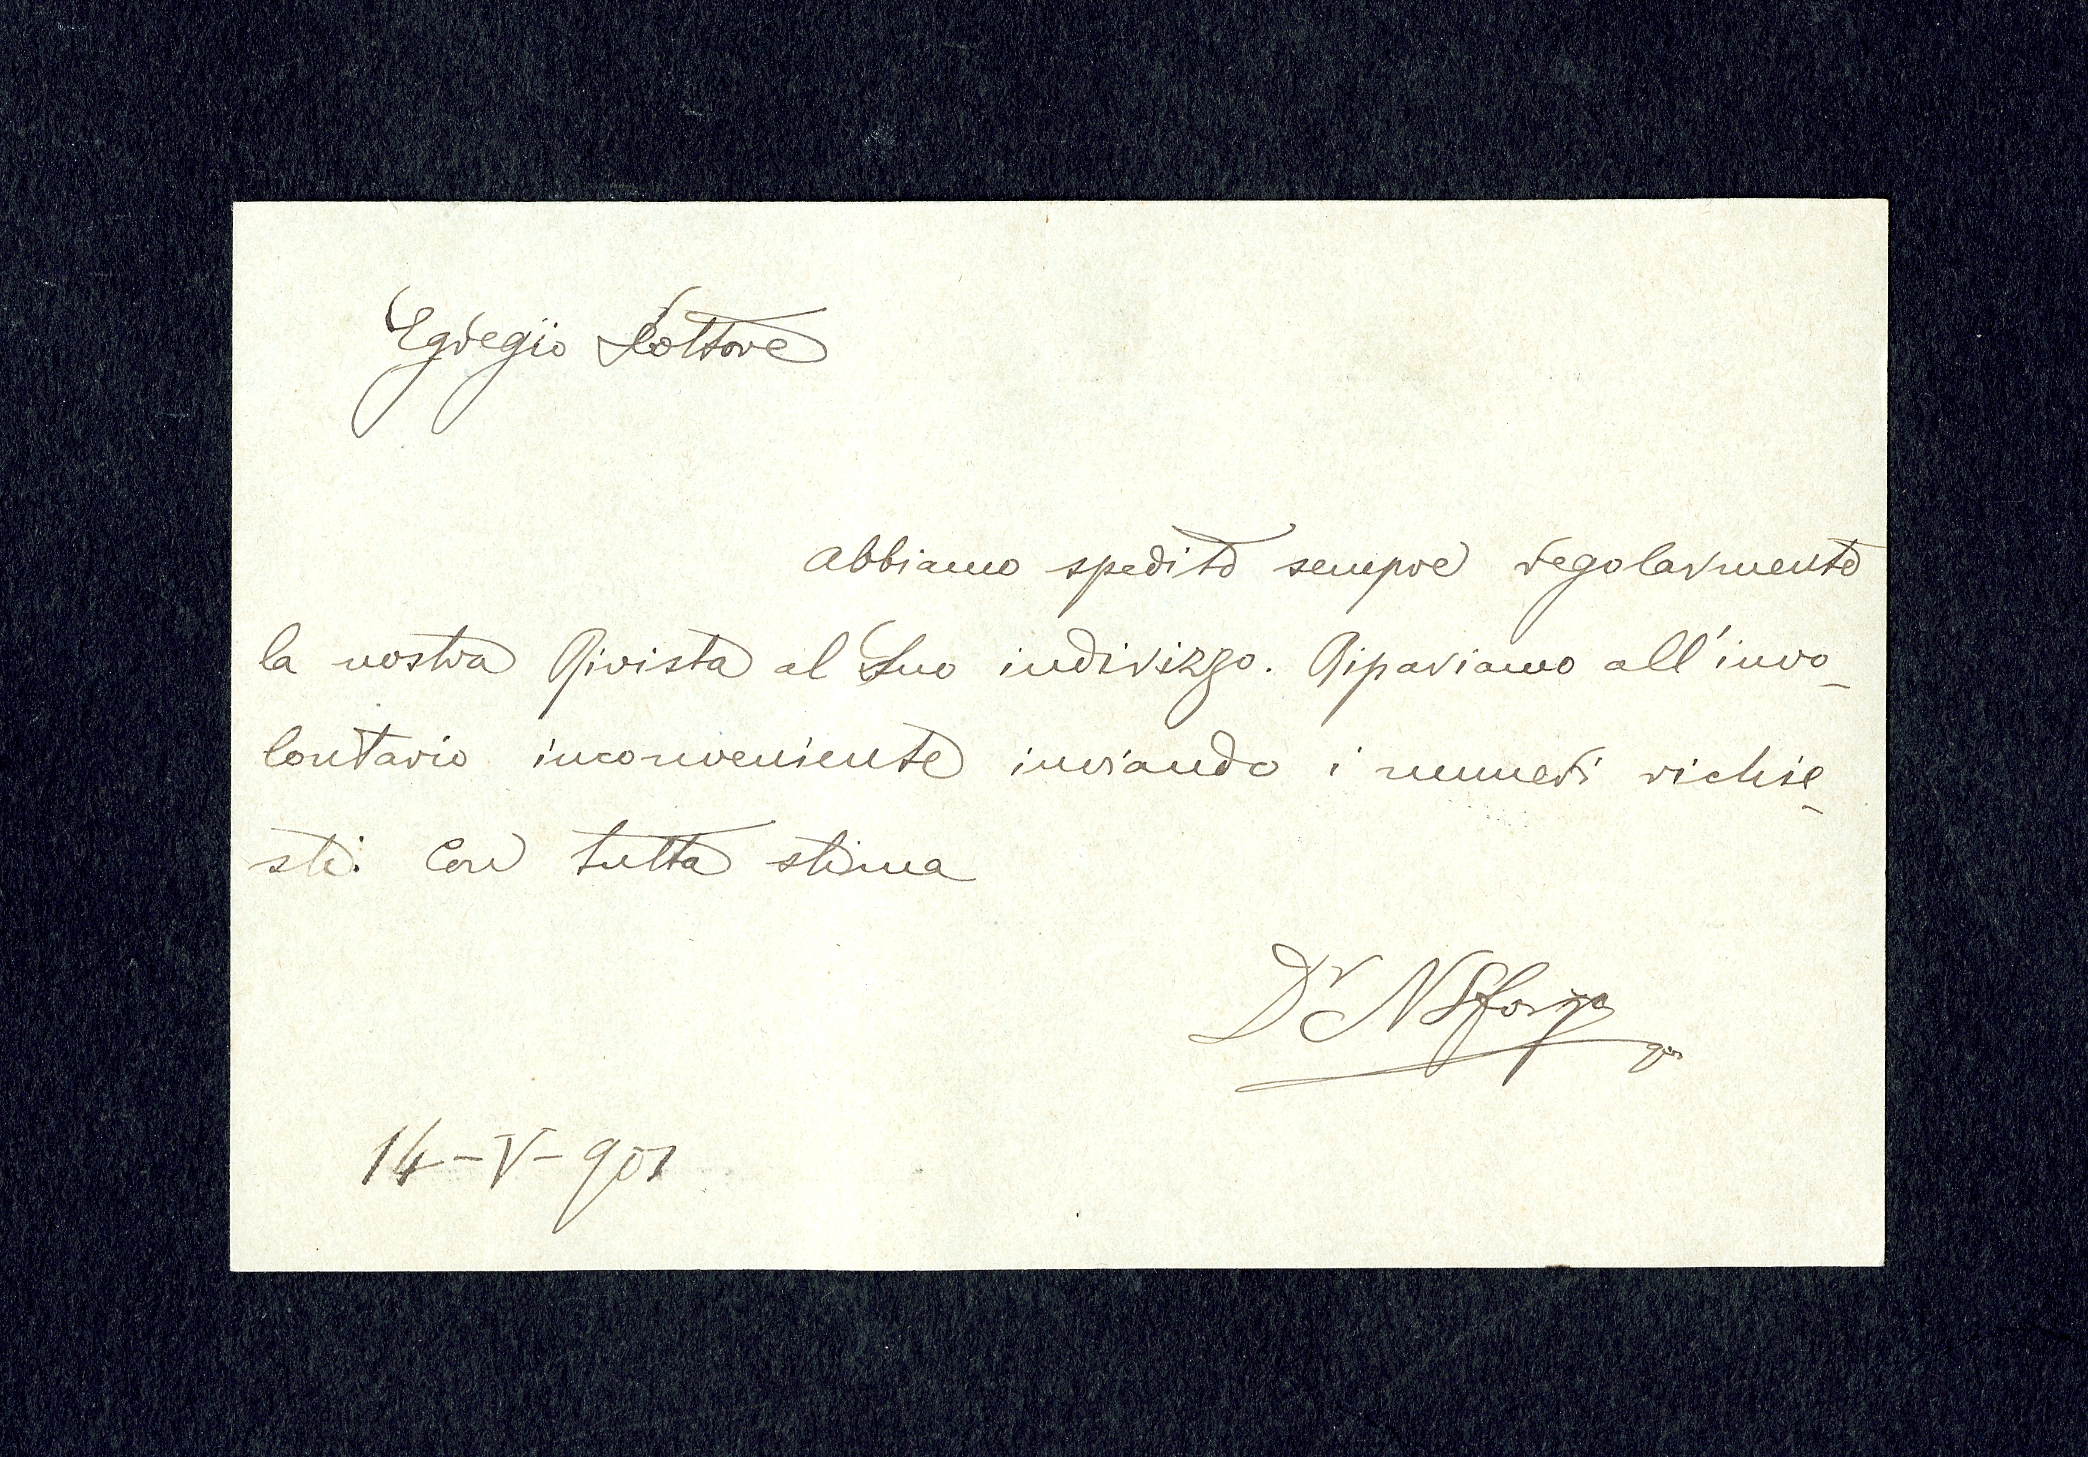 Egregio Dottore
abbiamo spedito sempre regolarmente
la nostra Rivista al Suo indirizzo. Ripariamo all'invo-
lontario inconveniente inviando i numeri richie-
sti. Con tutta stima
Dr N Sforza
14-V-901